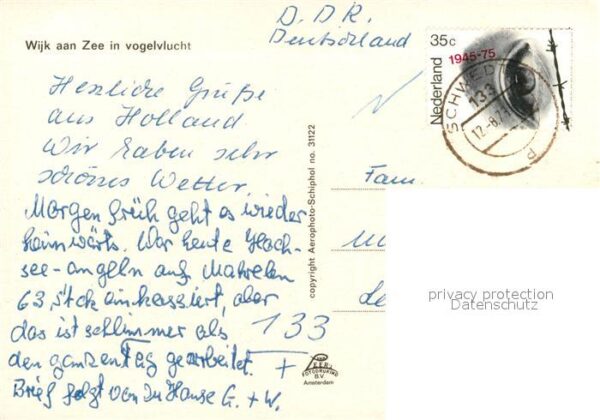 Wijk aan Zee in vogelvlucht
D.D.R.
Deutschland
35c
1945-75
Nederland
SCHWEDT
133
12.-8.
Herzliche Grüße
aus Holland
Wir haben sehr
schönes Wetter.
Morgen früh geht es wieder
heimwärts. War heute Hoch-
see-angeln auf Makrelen
63 Stck einkassiert, aber
das ist schlimmer als
den ganzen Tag gearbeitet.
Brief folgt von zu Hause G. + W.
133
+
copyright Aerophoto-Schiphol no. 31122
Fam.
FOTODRUKKERIJ
B.V.
Amsterdam
privacy protection
Datenschutz